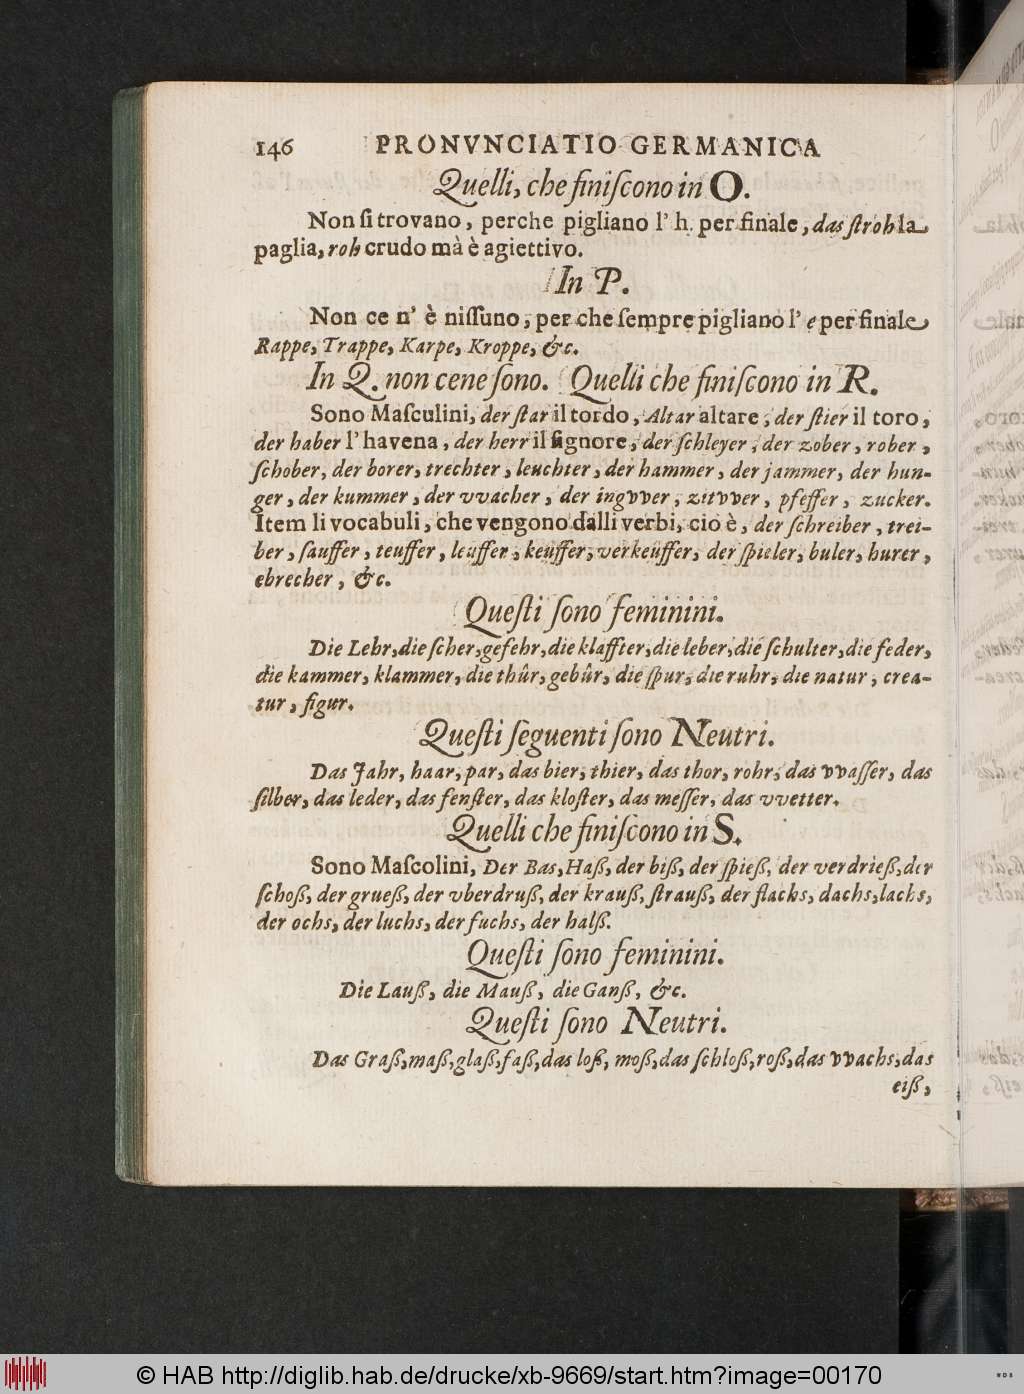 146 PRONVNCIATIO GERMANICA
Quelli, che finiſcono in O.
Non ſi trovano, perche pigliano l' h. per finale, das ſtroh la
paglia, roh crudo mà è agiettivo.
In P.
Non ce n' è niſſuno, per che ſempre pigliano l' e per finale
Rappe, Trappe, Karpe, Kroppe, &c.
In Q. non cene ſono. Quelli che finiſcono in R.
Sono Maſculini, der ſtar il tordo, Altar altare, der ſtier il toro,
der haber l' havena, der herr il ſignore, der ſchleyer, der zober, rober,
ſchober, der borer, trechter, leuchter, der hammer, der jammer, der hun-
ger, der kummer, der vvacher, der ingvver, zitvver, pfeffer, zucker.
Item li vocabuli, che vengono dalli verbi, cio è, der ſchreiber, trei-
ber, ſauffer, teuffer, leuffer, keuffer, verkeuffer, der ſpieler, buler, hurer,
ebrecher, &c.
Queſti ſono feminini.
Die Lehr, die ſcher, gefehr, die klaffter, die leber, die ſchulter, die feder,
die kammer, klammer, die thûr, gebûr, die ſpur, die ruhr, die natur, crea-
tur, figur.
Queſti ſeguenti ſono Neutri.
Das Jahr, haar, par, das bier, thier, das thor, rohr, das vvaſſer, das
ſilber, das leder, das fenſter, das kloſter, das meſſer, das vvetter.
Quelli che finiſcono in S.
Sono Maſcolini, Der Bas, Haß, der biß, der ſpieß, der verdrieß, der
ſchoß, der grueß, der vberdruß, der krauß, ſtrauß, der flachs, dachs, lachs,
der ochs, der luchs, der fuchs, der halß.
Queſti ſono feminini.
Die Lauß, die Mauß, die Ganß, &c.
Queſti ſono Neutri.
Das Graß, maß, glaß, faß, das loß, moß, das ſchloß, roß, das vvachs, das
eiß,
© HAB http://diglib.hab.de/drucke/xb-9669/start.htm?image=00170